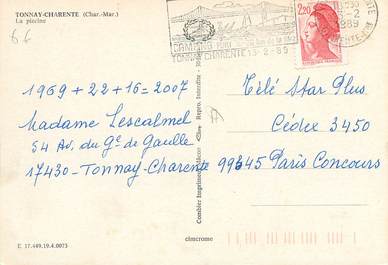 TONNAY-CHARENTE (Char.-Mar.)
La piscine
66
2,20
TONNAY CHARENTE 13-2-89
1969 + 22 + 16 = 2007
Madame Lescalmel
54 Av. du Gal de Gaulle
17430 - Tonnay-Charente
Télé Star Plus
Cédex 3450
99345 Paris Concours
Combier Imprimeur Mâcon
Repro. Interdite
E 17.449.19.4.0073
cimcrome